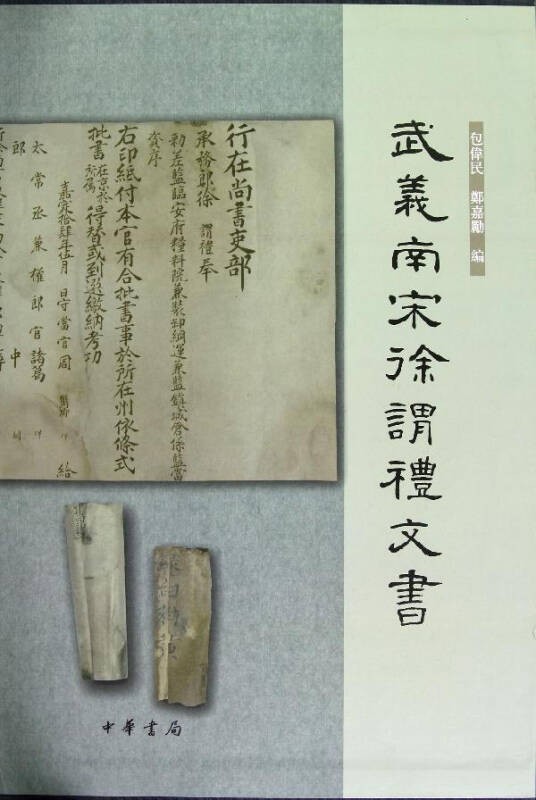 武義南宋徐謂禮文書
包偉民 鄭嘉勵 編
行在尚書吏部
承務郎徐 謂禮奉
勑差監臨安府糧料院兼裝卸綱運兼監鎮城倉係監當
資序
右印紙付本官有合批書事於所在州依條式
批書在京於所屬得替或到選繳納考功
嘉定拾肆年伍月 日守當官周 給
太常丞兼權郎官諸葛
郎 中
中華書局